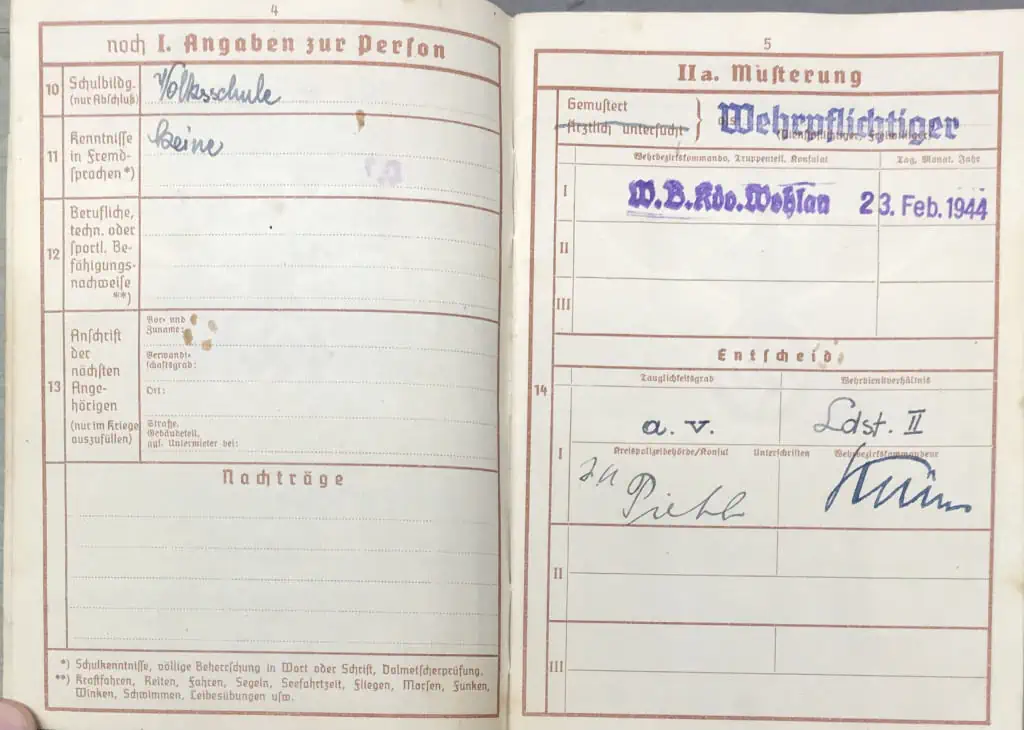 4
noch I. Angaben zur Person
10
Schulbildg.
(nur Abschluß)
Volksschule
11
Kenntnisse
in Fremd-
sprachen *)
Keine
12
Berufliche,
techn. oder
sportl. Be-
fähigungs-
nachweise
**)
13
Anschrift
der
nächsten
Ange-
hörigen
(nur im Kriege
auszufüllen)
Vor- und
Zuname:
Verwandt-
schaftsgrad:
Ort:
Straße,
Gebäudeteil,
ggf. Untermieter bei:
Nachträge
*) Schulkenntnisse, völlige Beherrschung in Wort oder Schrift, Dolmetscherprüfung.
**) Kraftfahren, Reiten, Fahren, Segeln, Seefahrtzeit, Fliegen, Morsen, Funken,
Winken, Schwimmen, Leibesübungen usw.
5
IIa. Musterung
Gemustert
Ärztlich untersucht
als
Wehrpflichtiger
(Dienstpflichtiger, Freiwilliger)
Wehrbezirkskommando, Truppenteil, Konsulat
Tag, Monat, Jahr
I
W.B.Kdo.Wohlau 23. Feb. 1944
II
III
Entscheid
14
Tauglichkeitsgrad
Wehrdienstverhältnis
a. v.
Ldst. II
I
Kreispolizeibehörde/Konsul
Unterschriften
Wehrbezirkskommandeur
II
III